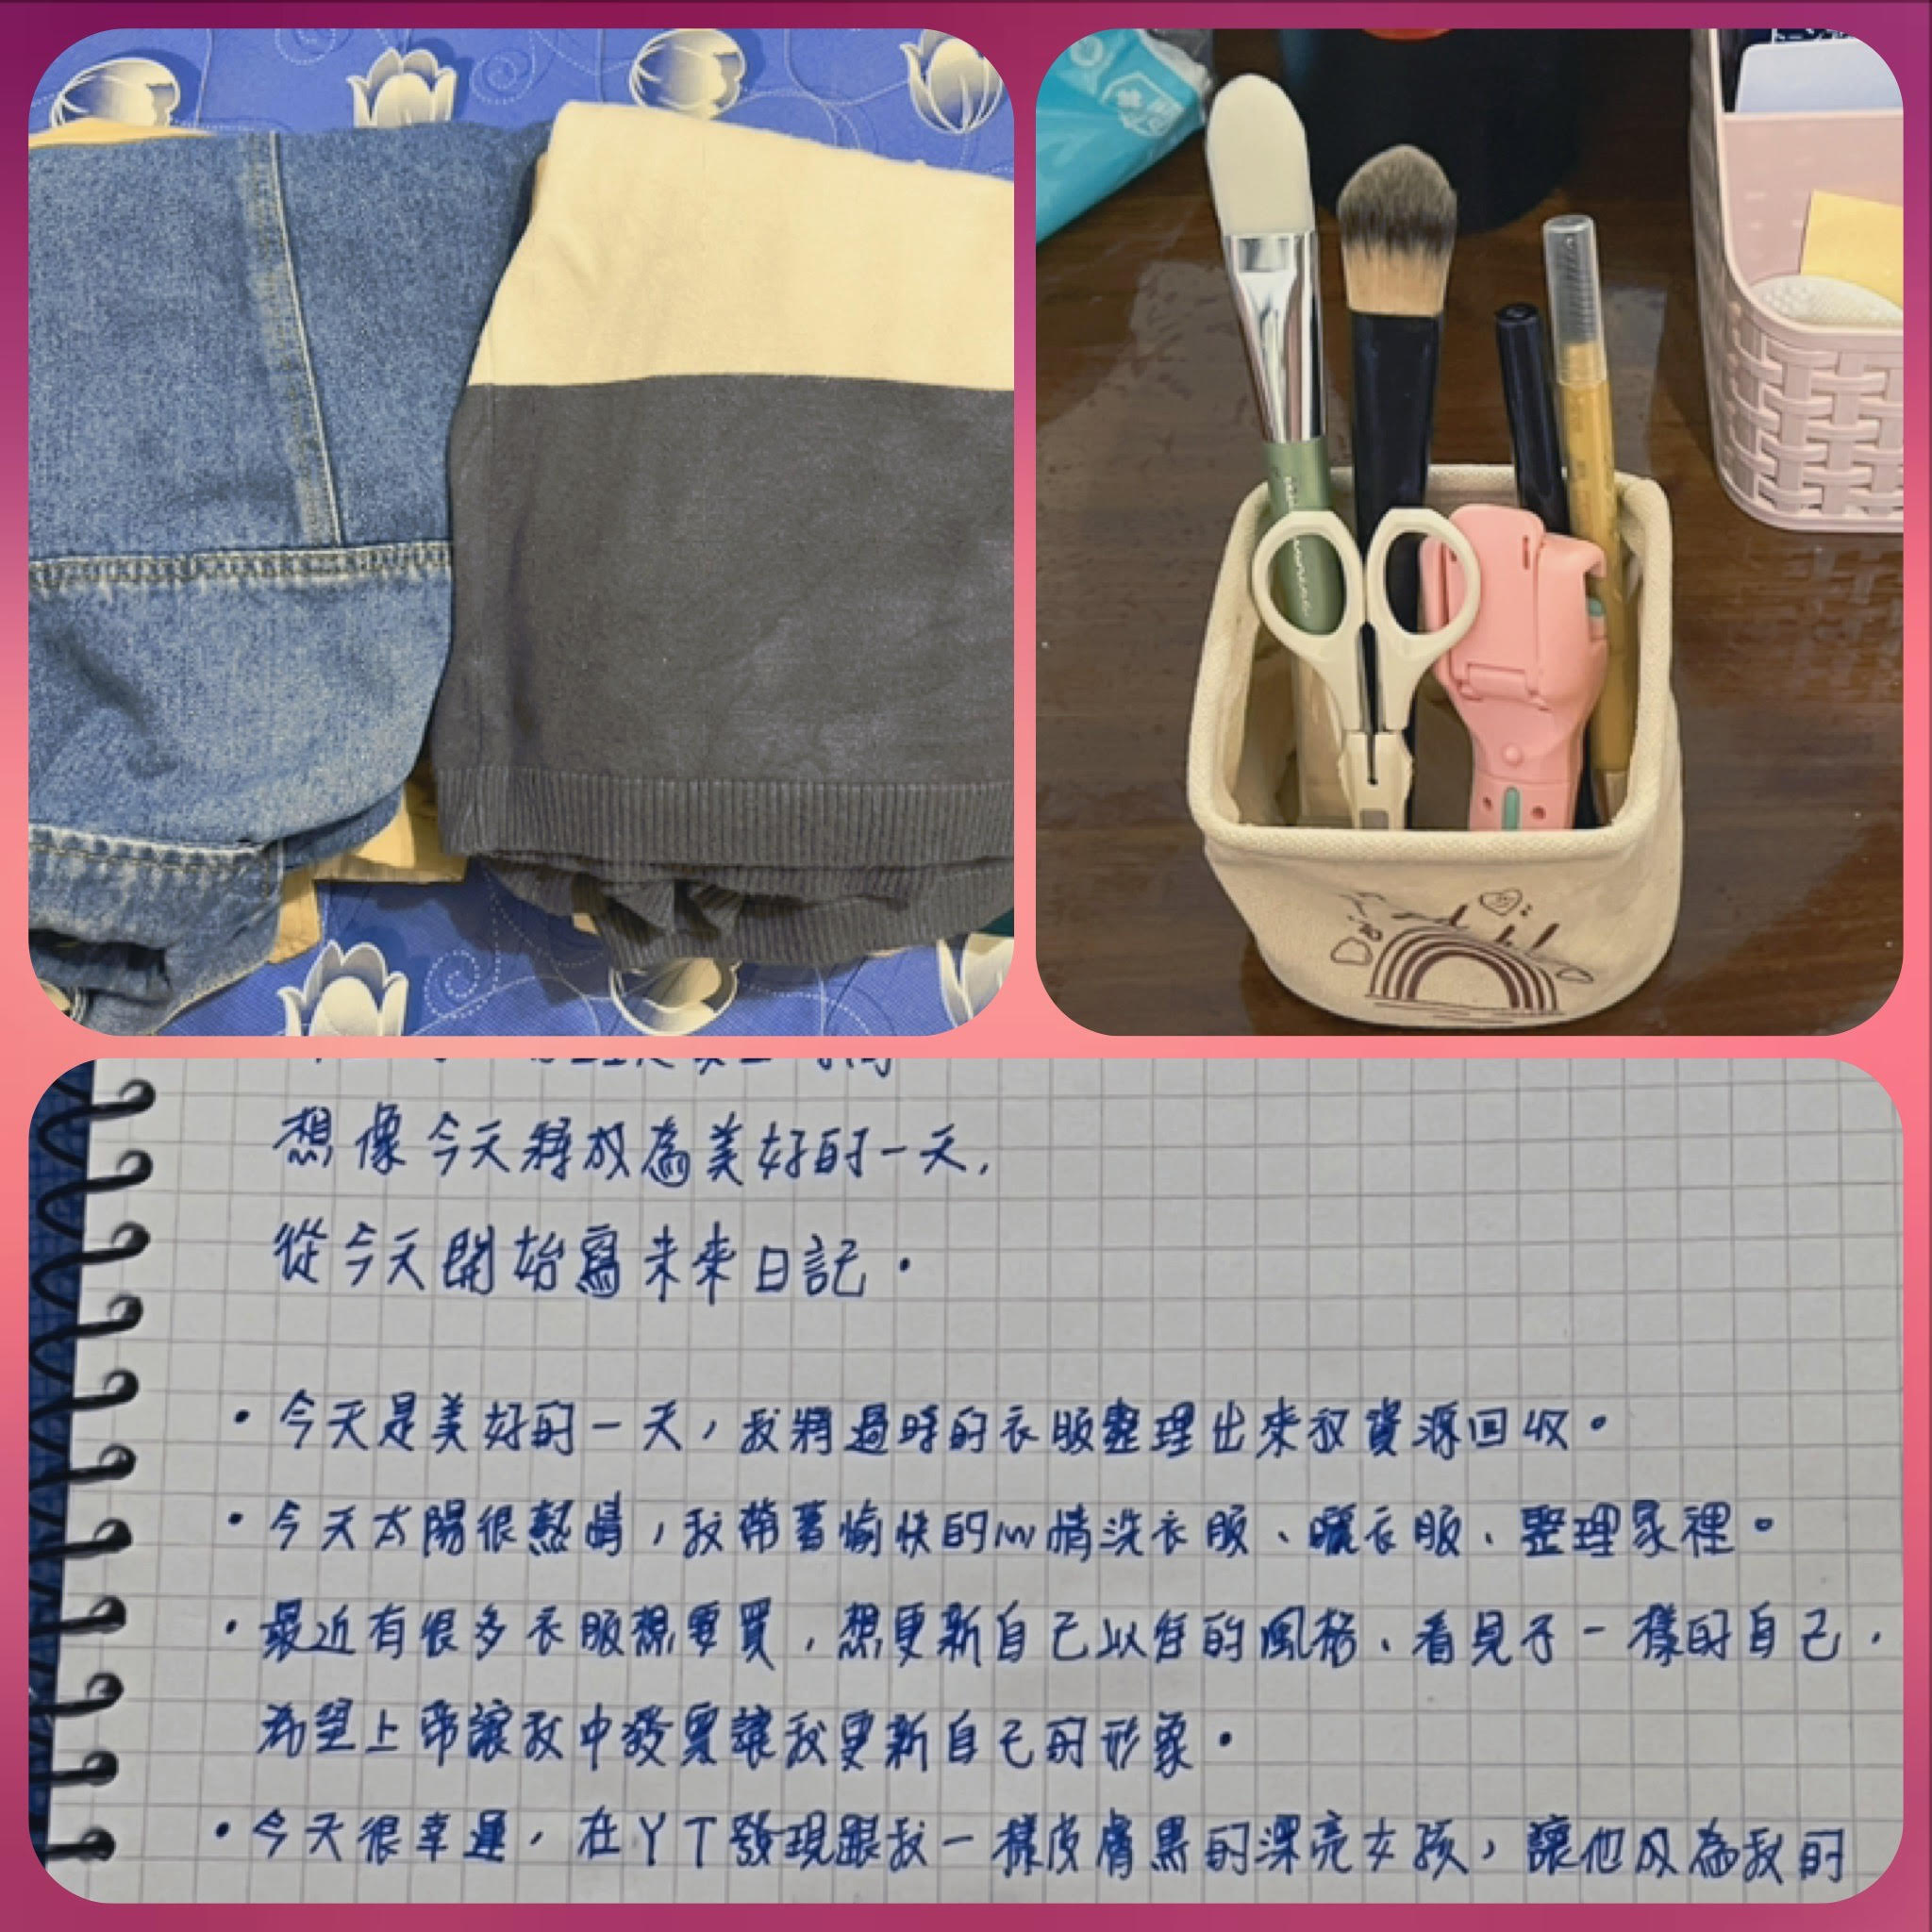 想像今天將成為美好的一天,
從今天開始寫未來日記。
•今天是美好的一天,我將過時的衣服整理出來做資源回收。
•今天太陽很熱情,我帶著愉快的心情洗衣服、曬衣服、整理家裡。
•最近有很多衣服想要買,想更新自己以往的風格、看見不一樣的自己,
希望上帝讓我中發票讓我更新自己的形象。
•今天很幸運,在YT發現跟我一樣皮膚黑的漂亮女孩,讓他成為我的